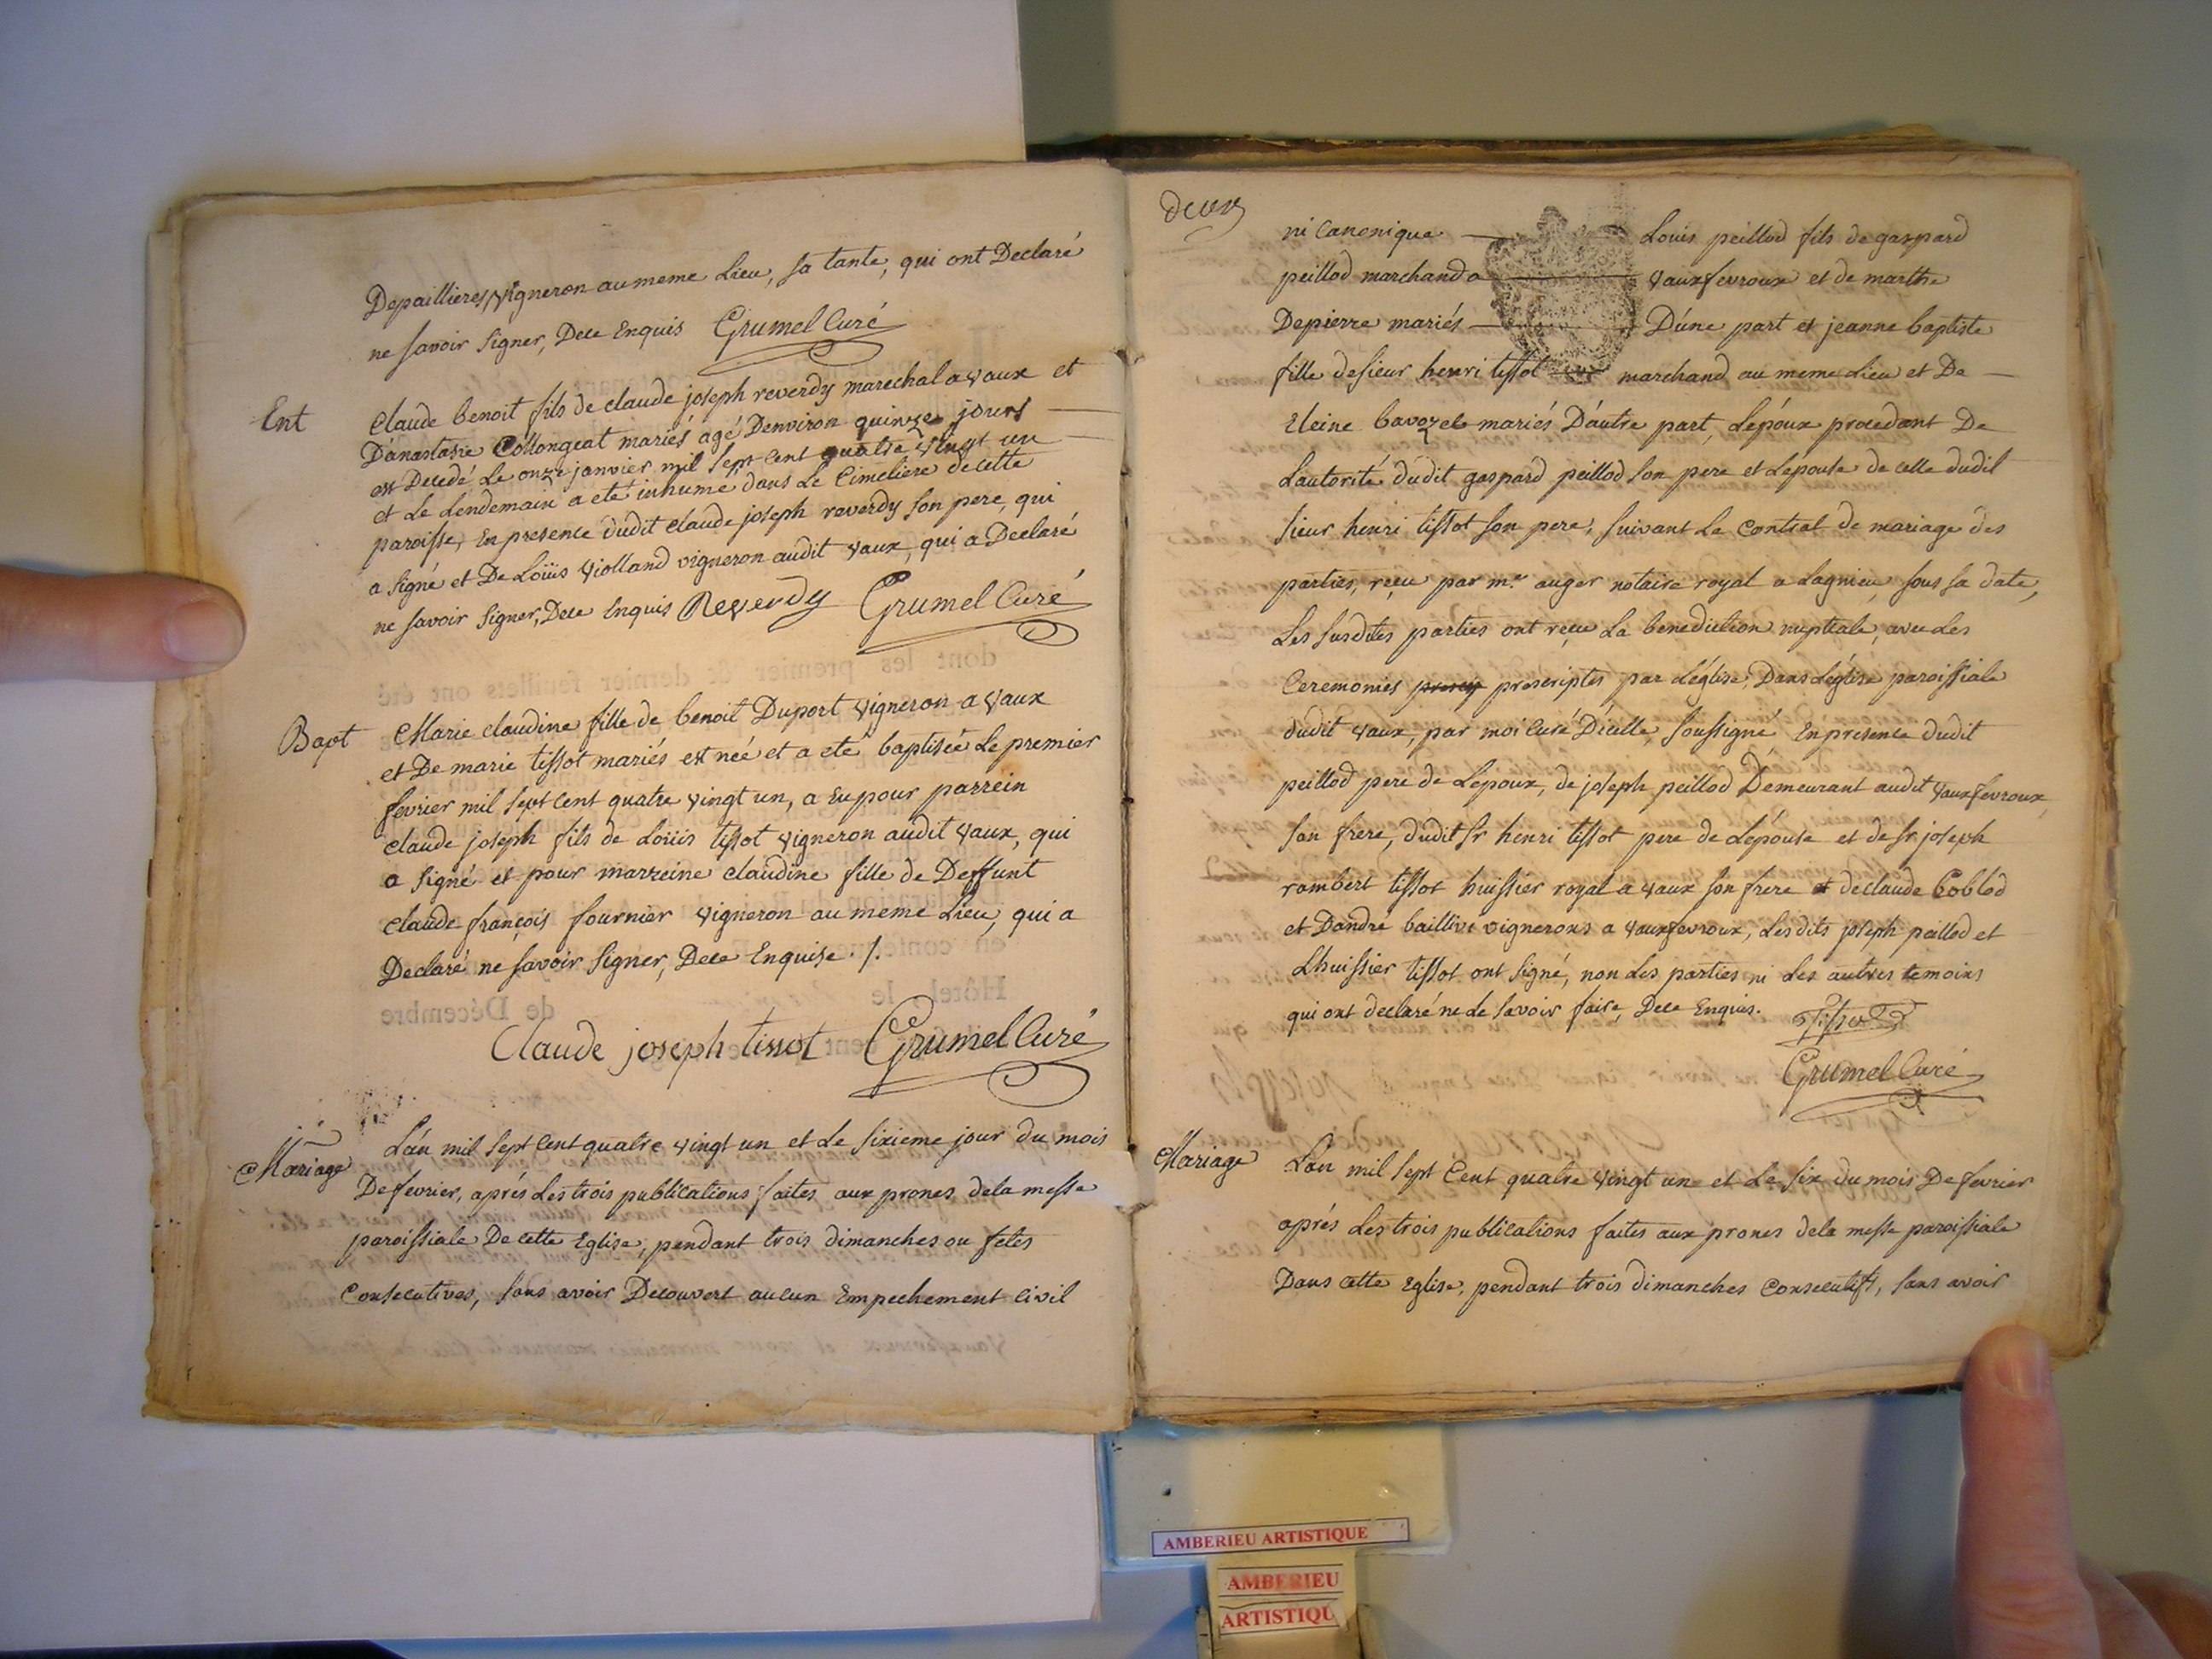 Depaillieres, vigneron au meme Lieu, sa tante, qui ont Declaré
ne savoir signer, Dece Enquis Grumel Curé
Ent
Claude benoit fils de claude joseph reverdy marechal a vaux et
D'anastasie Collongeat mariés agé Denviron quinze jours
est Decedé Le onze janvier mil sept cent quatre vingt un
et Le Lendemain a eté inhumé dans Le Cimetiere de cette
paroisse, En presence dudit claude joseph reverdy son pere, qui
a signé et De Loüis violland vigneron audit vaux, qui a Declaré
ne savoir signer, Dece Enquis Reverdy Grumel Curé
Bapt
Marie claudine fille de benoit Duport vigneron a vaux
et De marie tissot mariés est née et a eté baptisée Le premier
fevrier mil sept cent quatre vingt un, a Eu pour parrein
claude joseph fils de Loüis tissot vigneron audit vaux, qui
a signé et pour marreine claudine fille de Deffunt
claude françois fournier vigneron au meme Lieu, qui a
Declaré ne savoir signer, Dece Enquise ./.
Claude joseph tissot Grumel Curé
Mariage
L'an mil sept Cent quatre vingt un et Le sixieme jour du mois
De fevrier, aprés Les trois publications faites aux prones dela messe
paroissiale De cette Eglise, pendant trois dimanches ou fetes
Consecutives, sans avoir Decouvert aucun Empechement Civil
deux
ni Canonique Louis peillod fils de gaspard
peillod marchand a vauxfevroux et de marthe
Depierre mariés D'une part et jeanne baptiste
fille de sieur henri tissot marchand au meme Lieu et De
Eleine bavozet mariés D'autre part, L'epoux procedant De
L'autorité dudit gaspard peillod son pere et Lepouse de celle dudit
sieur henri tissot son pere, suivant Le Contrat de mariage des
parties, reçu par mr auger notaire royal a Lagnieu, sous sa date,
Les susdites parties ont reçu La benediction nuptiale, avec Les
Ceremonies prescriptes par L'église, Dans L'église paroissiale
dudit vaux, par moi Curé D'icelle, soussigné En presence dudit
peillod pere de L'epoux, de joseph peillod Demeurant audit vauxfevroux
son frere, dudit Sr henri tissot pere de L'épouse et de Sr joseph
rambert tissot huissier royal a vaux son frere et de claude Coblod
et D'andré baillivi vignerons a vauxfevroux, Lesdits joseph peillod et
L'huissier tissot ont signé, non Les parties ni Les autres temoins
qui ont declaré ne Le savoir faire, Dece Enquis. Tissot
Grumel Curé
Mariage
L'an mil sept Cent quatre vingt un et Le six du mois De fevrier
aprés Les trois publications faites aux prones dela messe paroissiale
Dans cette Eglise, pendant trois dimanches Consecutifs, sans avoir
AMBERIEU ARTISTIQUE
AMBERIEU
ARTISTIQU